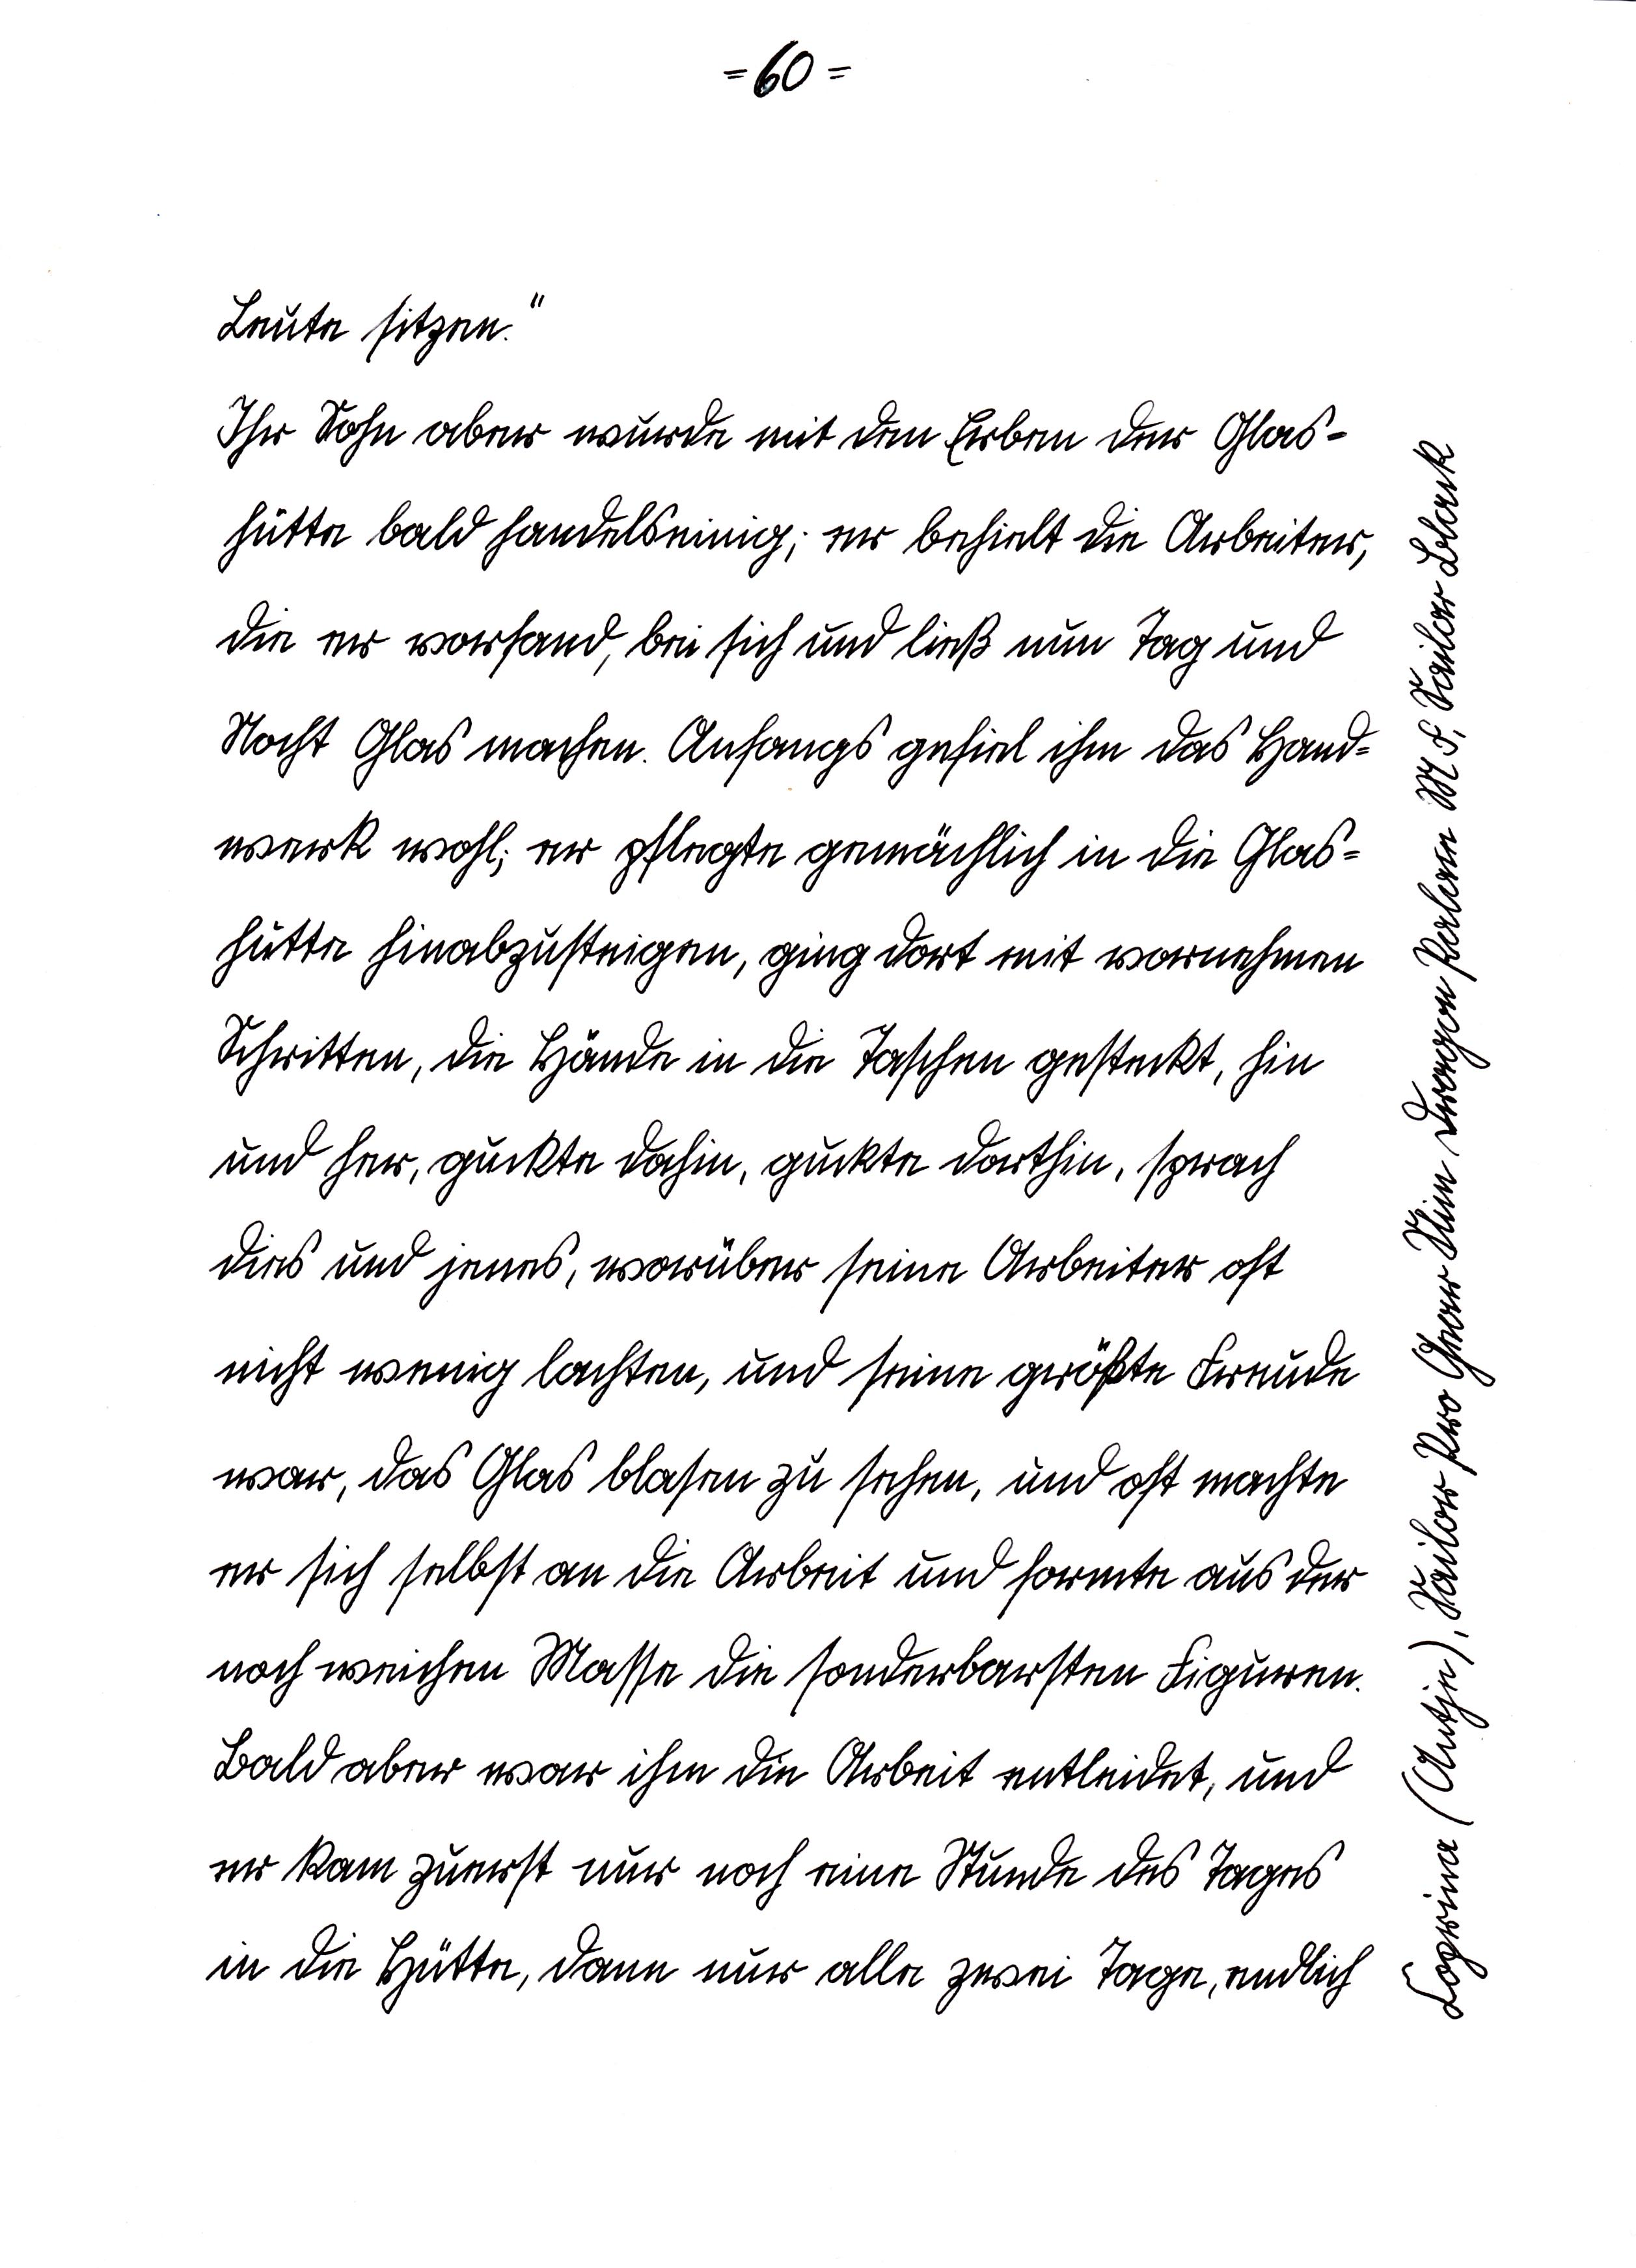 =60=
Leute sitzen."
Ihr Sohn aber wurde mit den Erben der Glas=
hütte bald handelseinig; er behielt die Arbeiter,
die er vorfand, bei sich und ließ nun Tag und
Nacht Glas machen. Anfangs gefiel ihm das Hand=
werk wohl; er pflegte gemächlich in die Glas=
hütte hinabzusteigen, ging dort mit vornehmen
Schritten, die Hände in die Taschen gesteckt, hin
und her, guckte dahin, guckte dorthin, sprach
dies und jenes, worüber seine Arbeiter oft
nicht wenig lachten, und seine größte Freude
war, das Glas blasen zu sehen, und oft machte
er sich selbst an die Arbeit und formte aus der
noch weichen Masse die sonderbarsten Figuren.
Bald aber war ihm die Arbeit entleidet, und
er kam zuerst nur noch eine Stunde des Tages
in die Hütte, dann nur alle zwei Tage, endlich
(Antje), Sailor Pro Gear Slim Dragon Palace M F, Sailor Black